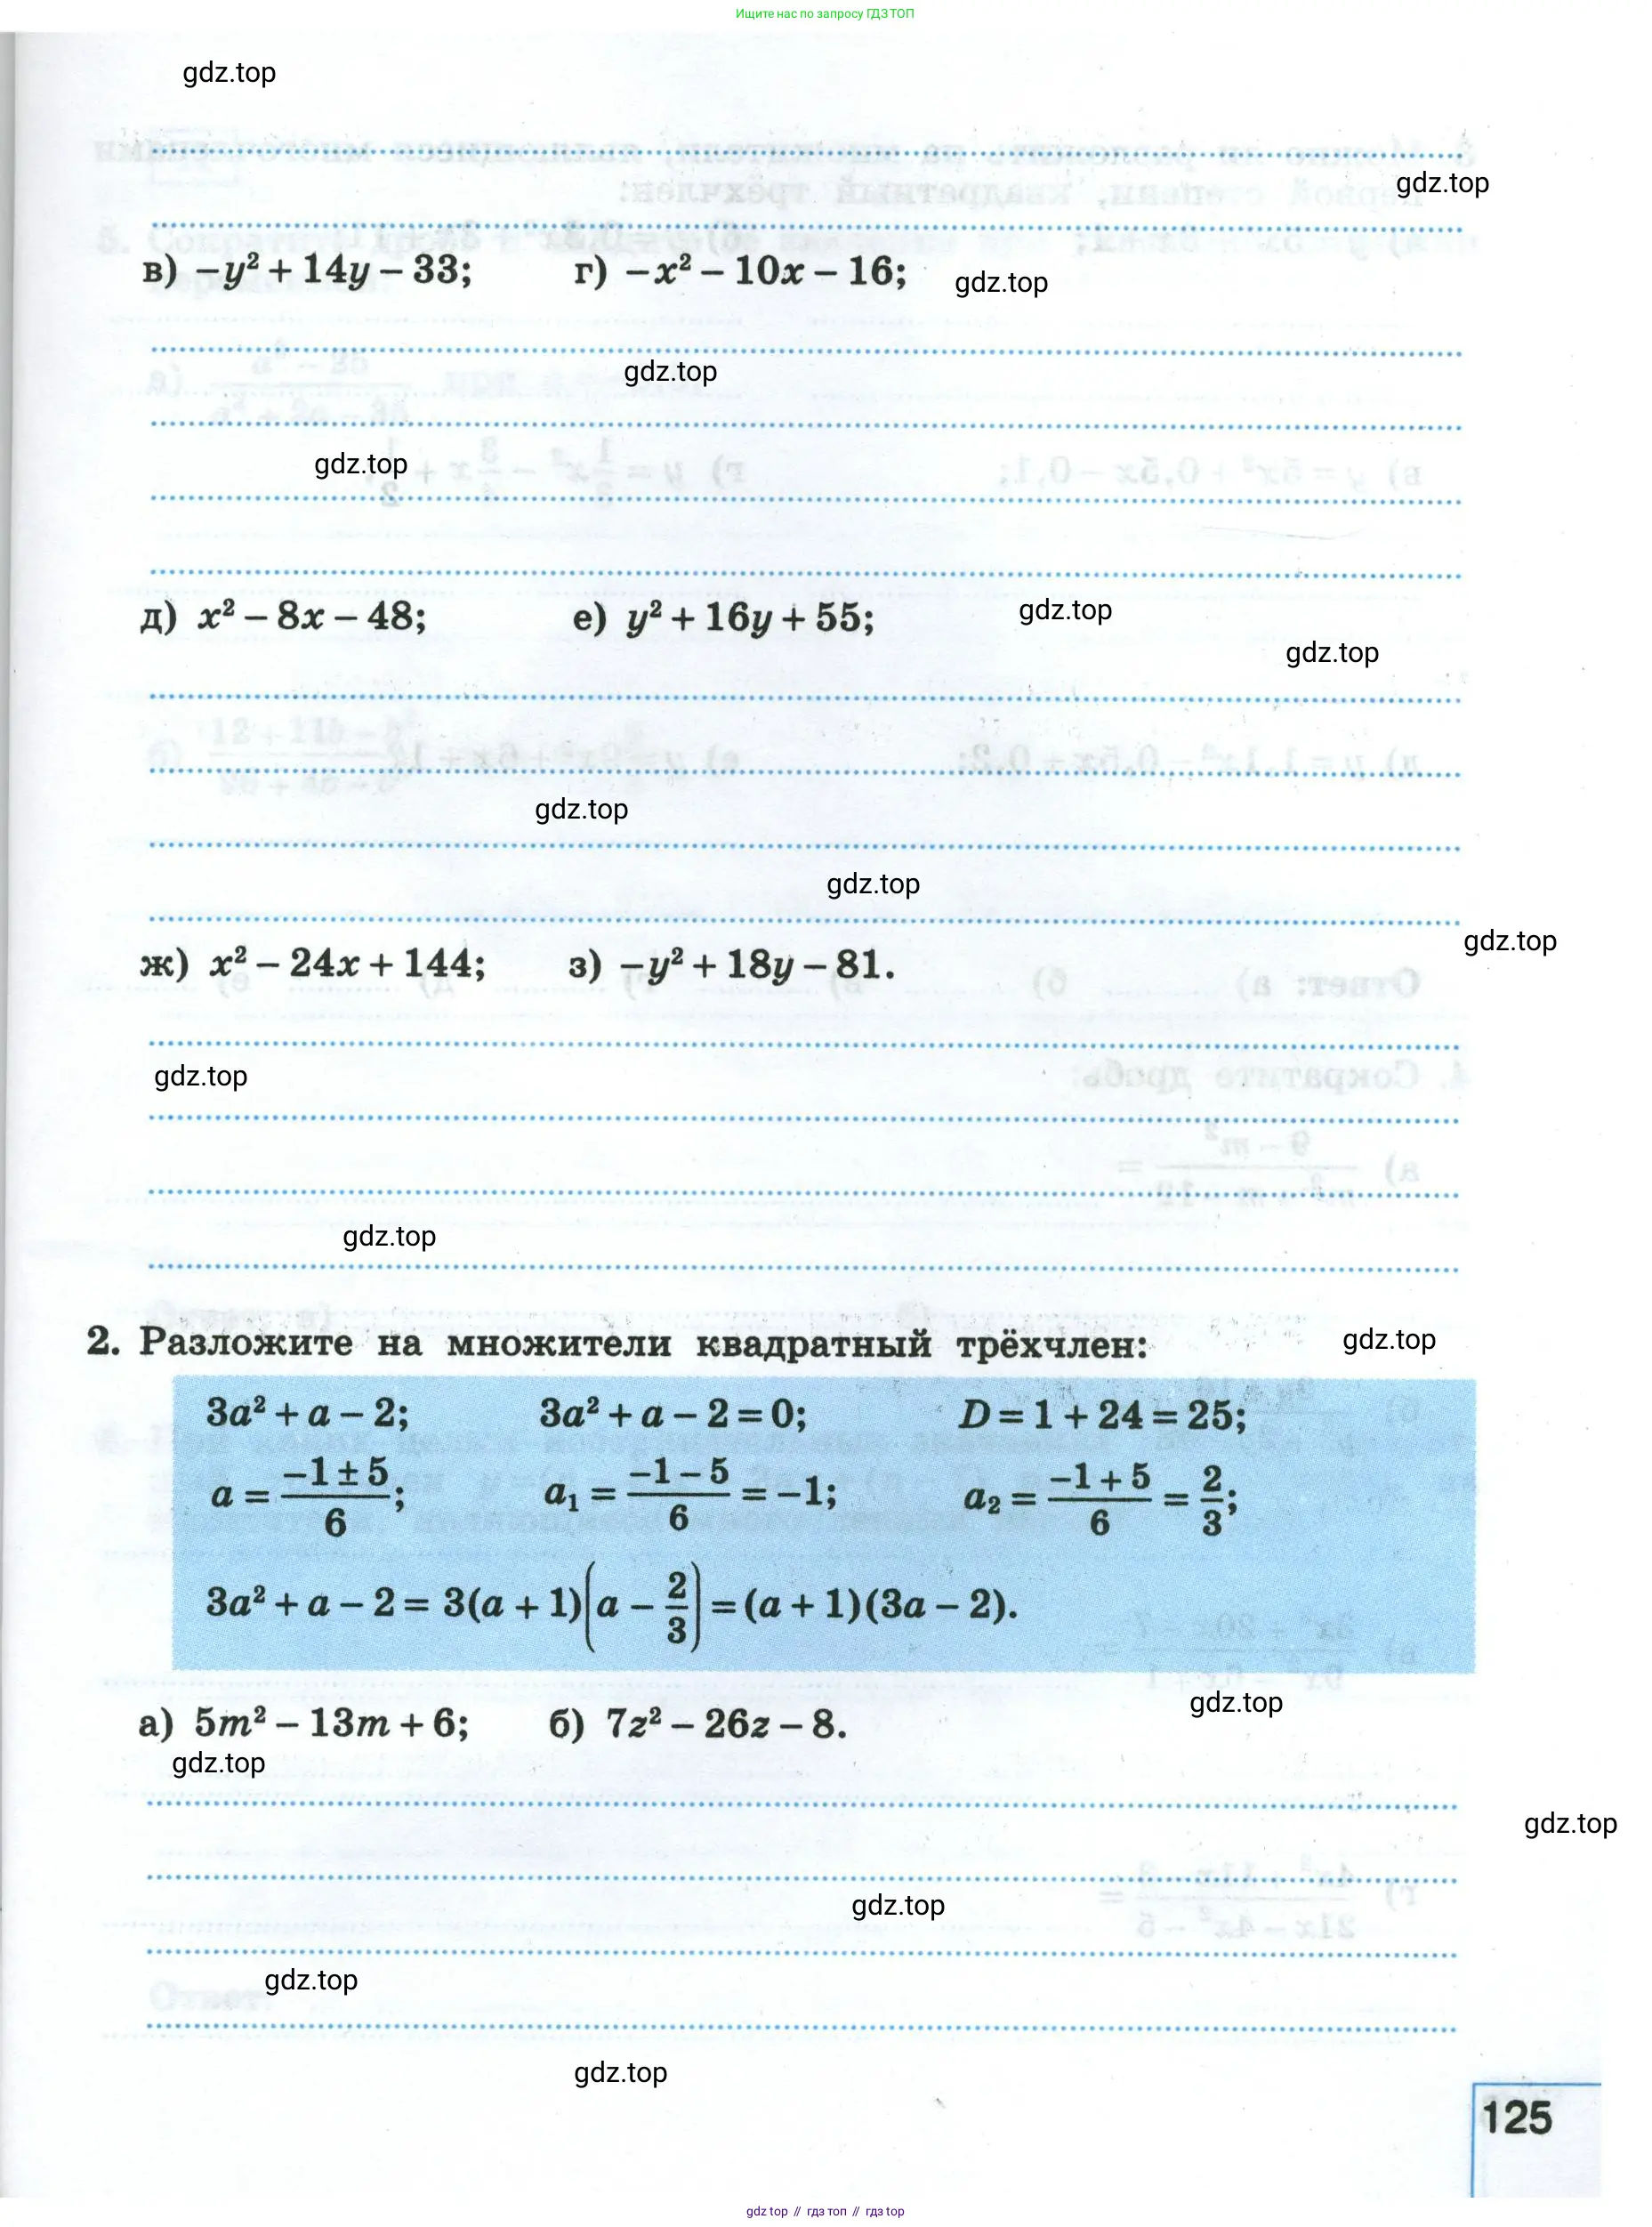 Ищите нас по запросу ГДЗ ТОП
gdz.top
gdz.top
в) −y² + 14y − 33; г) −x² − 10x − 16; gdz.top
gdz.top
gdz.top
д) x² − 8x − 48; е) y² + 16y + 55; gdz.top
gdz.top
gdz.top
gdz.top
gdz.top
ж) x² − 24x + 144; з) −y² + 18y − 81.
gdz.top
gdz.top
2. Разложите на множители квадратный трёхчлен: gdz.top
3a² + a − 2; 3a² + a − 2 = 0; D = 1 + 24 = 25;
a = (−1 ± 5)/6; a₁ = (−1 − 5)/6 = −1; a₂ = (−1 + 5)/6 = 2/3;
3a² + a − 2 = 3(a + 1)(a − 2/3) = (a + 1)(3a − 2).
gdz.top
а) 5m² − 13m + 6; б) 7z² − 26z − 8.
gdz.top
gdz.top
gdz.top
gdz.top
gdz.top
125
gdz top // гдз топ // гдз top